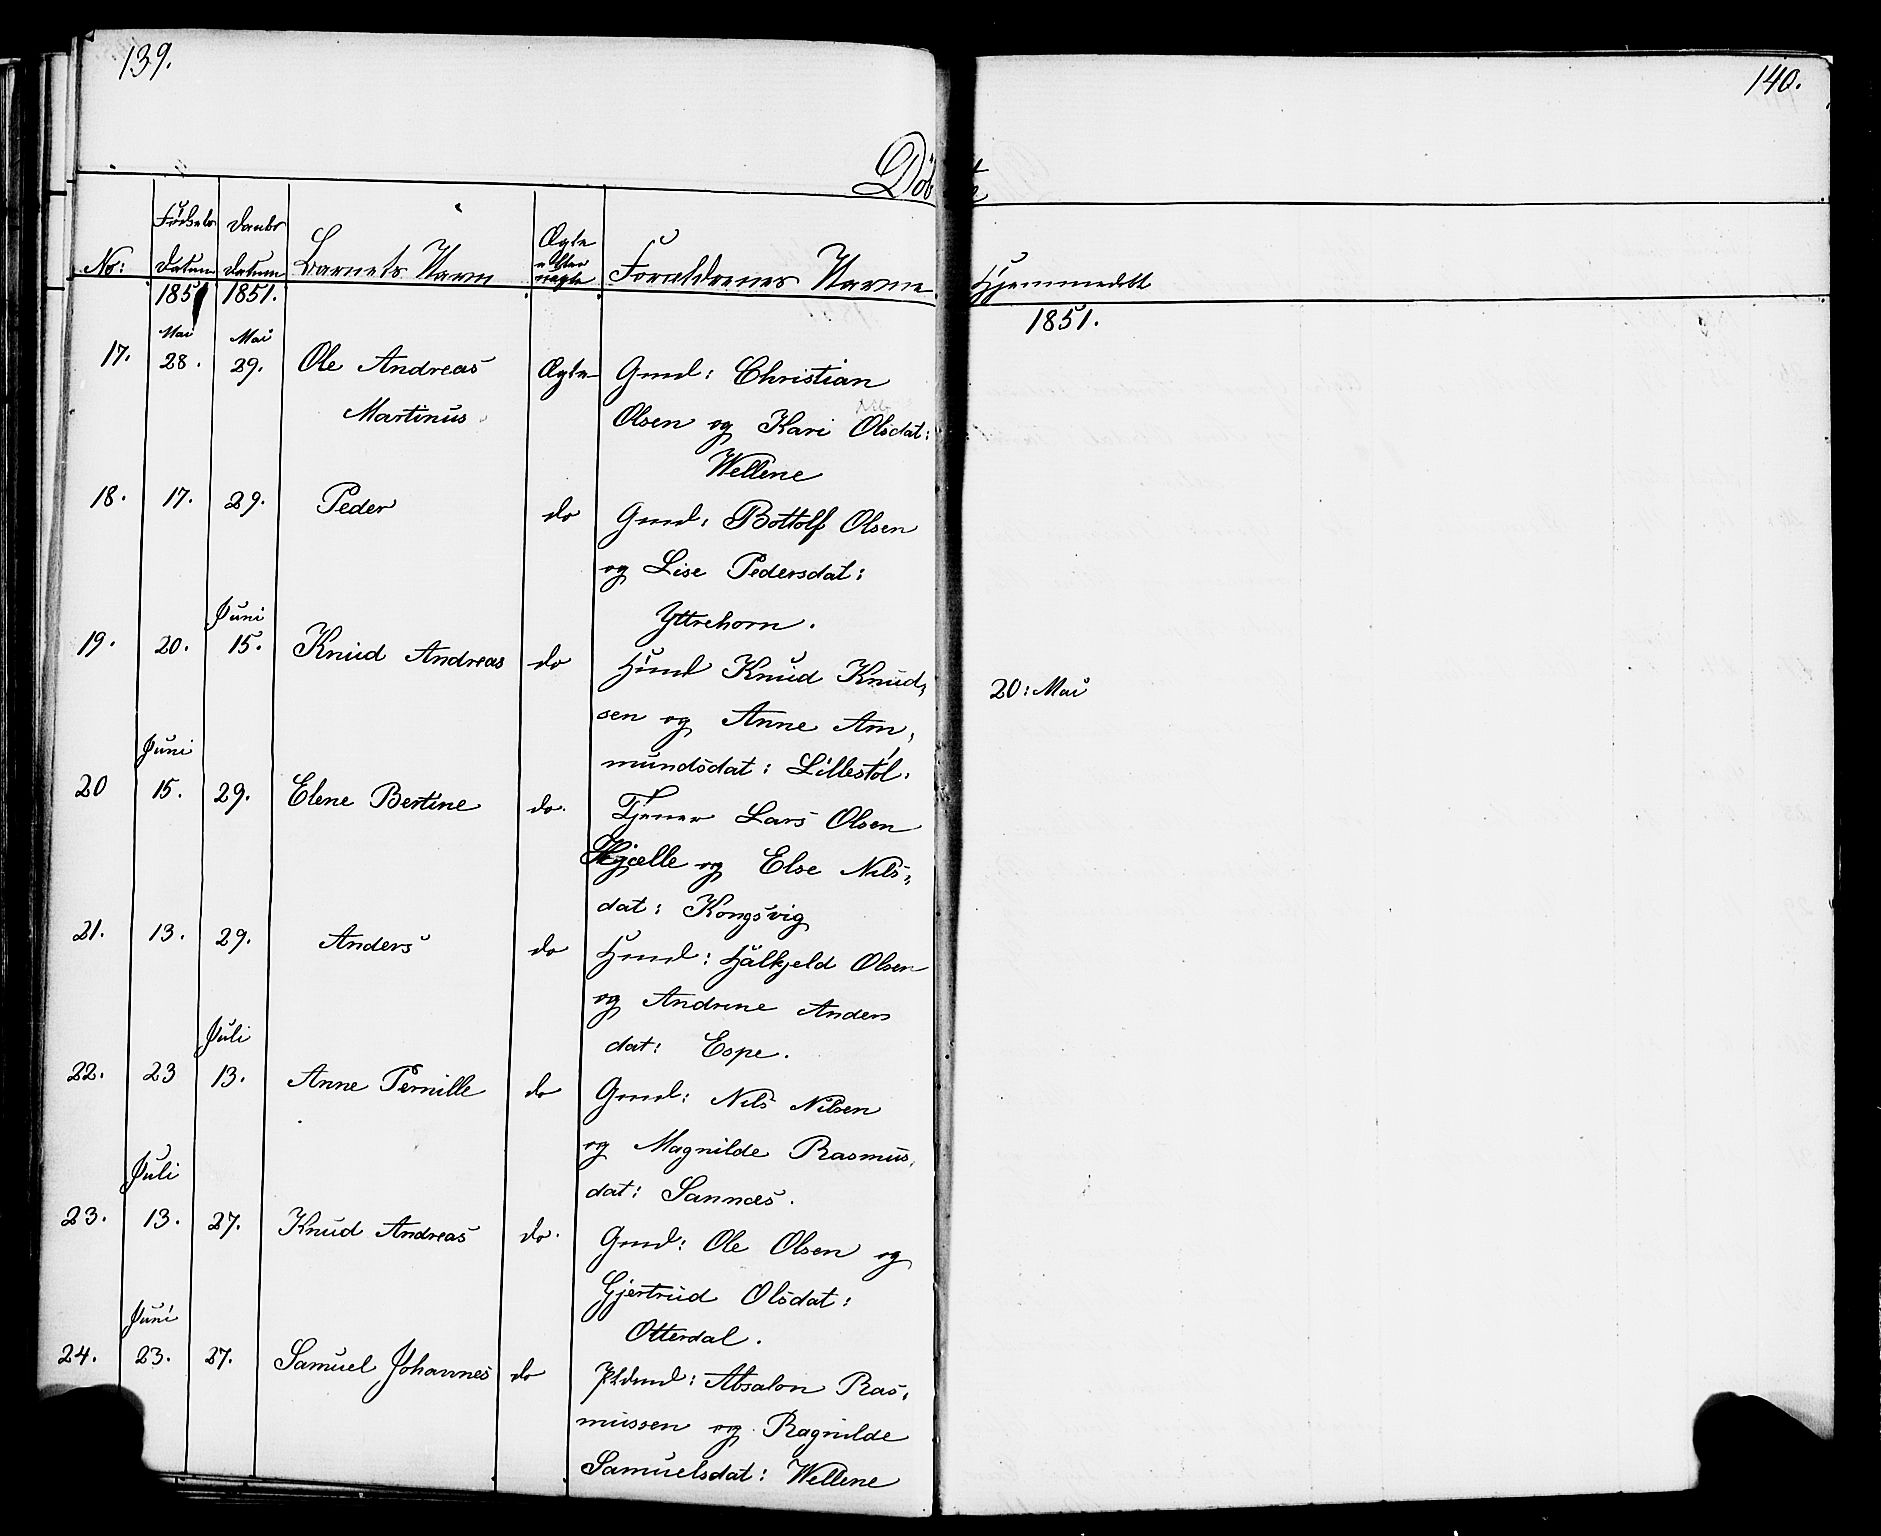 139.
140.
Døbte
No: Fødsels Datum Daabs Datum Barnets Navn Ægte eller uægte Forældrenes Navne Hjemmedøbt
1851 1851. 1851.
Mai Mai
17. 28. 29. Ole Andreas Ægte Gmd: Christian
Martinus Olsen og Kari Olsdat:
Wellene
18. 17. 29. Peder do Gmd: Bottolf Olsen
og Lise Pedersdat:
Yttrehorn.
Juni
19. 20. 15. Knud Andreas do Hmd Knud Knud,
20: Mai
sen og Anne Am,
mundsdat: Lillestøl.
Juni
20 15. 29. Elene Bertine do. Tjener Lars Olsen
Hjælle og Else Nils,
dat: Kongsvig
21. 13. 29. Anders do Hmd: Halkjeld Olsen
og Andrine Anders
dat: Espe.
Juli
22. 23 13. Anne Pernille do Gmd: Nils Nilsen
og Magnilde Rasmus,
dat: Sannæs.
Juli
23. 13. 27. Knud Andreas do. Gmd: Ole Olsen og
Gjertrud Olsdat:
Otterdal.
Juni
24. 23. 27. Samuel Johannes do Pldmd: Absalon Ras,
mussen og Ragnilde
Samuelsdat: Wellene